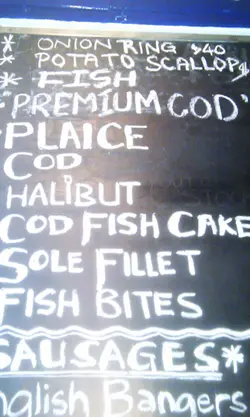 * ONION RING $40
* POTATO SCALLOP
* FISH
'PREMIUM COD'
PLAICE
COD
HALIBUT
COD FISH CAKE
SOLE FILLET
FISH BITES
SAUSAGES*
nglish Bangers